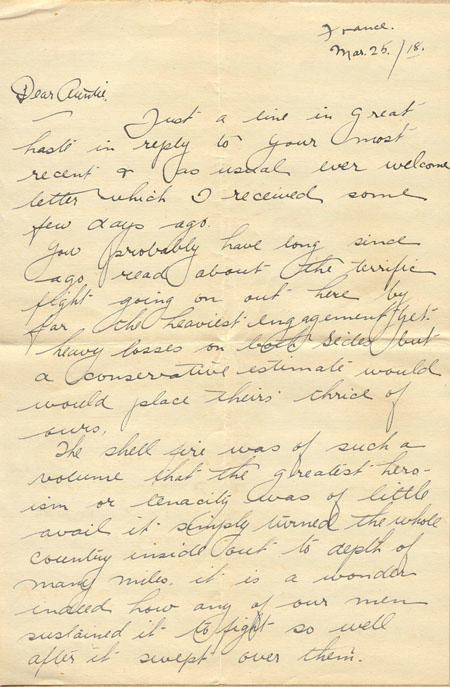 France.
Mar. 25./18.
Dear Auntie,
Just a line in great
haste in reply to your most
recent & as usual ever welcome
letter which I received some
few days ago.
You probably have long since
ago read about the terrific
fight going on out here by
far the heaviest engagement yet.
heavy losses on both sides but
a conservative estimate would
would place theirs thrice of
ours.
The shell fire was of such a
volume that the greatest hero-
ism or tenacity was of little
avail it simply turned the whole
country inside out to depth of
many miles. it is a wonder
indeed how any of our men
sustained it to fight so well
after it swept over them.